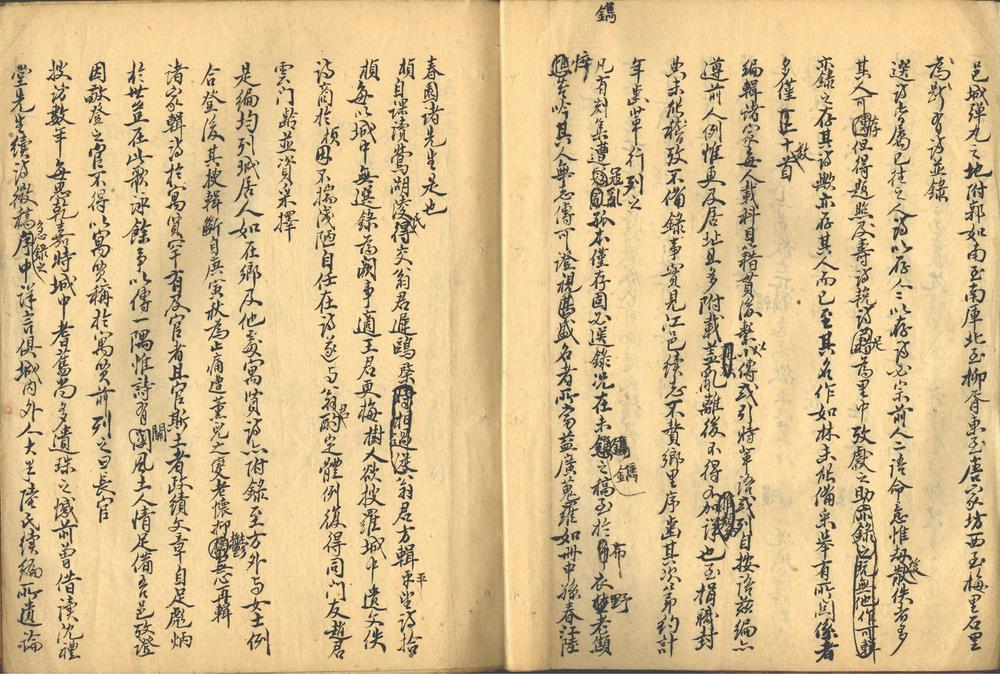 邑城彈丸之地附郭如南至南庫北至柳胥東至唐家坊西至梅里石里
為斷有詩並錄
選詩者屬已往之人為以存人人以存詩必宗前人二語命意惟散佚者多
其人可存但得題照及壽詩輓詩為里中攷獻之助
亦錄之存其詩歟亦存其人而已至其名作如林未能備采舉有所關係者
多僅數十首
編輯諸家每人載科目籍貫後系以小傳或引時輩語或列自按語茲編亦
遵前人例惟更及居址且多附載蓋亂離後不得不加詳也至捐職封
典未能稽攷不備錄事實見江邑續志不贅鄉里序齒其次第約計
年齒輩行列之
凡有刻集遭冠亂孤本僅存固必選錄況在未鐫之稿至於布衣野老顯
悴吟其人無志傳可證視盛名者所需益廣蒐羅如冊中孫春江陸
春圃諸先生是也
楨自課讀鶯湖凌氏得交翁君遲鷗漢翁君方輯平望詩拾
楨每以城中無選錄為闕事適王君再梅樹人欲搜羅城中遺文佚
詩商於楨因不揣淺陋自任在詩遂與翁君酌定體例復得同門友趙君
雲門黠並資采擇
是編均列城居人如在鄉及他處寓賢詩亦附錄至方外與女士例
合登後其梗輯斷自庚寅秋為止痛遭薰兒之變老懷抑鬱無心再輯
諸家輯詩於寓賢罕有及官者且官斯土者政績文章自足彪炳
於世並在此歌詠餘事以傳一隅惟詩有關風土人情足備吾邑攷證
因敬登之官不得以寓賢稱於寓賢前列之曰長官
搜訪數年每思乾嘉時城中耆舊尚多遺珠之憾前曾借讀沈禮
堂先生續詩徵稿序中詳言俱城內外人大半陸氏續編所遺論